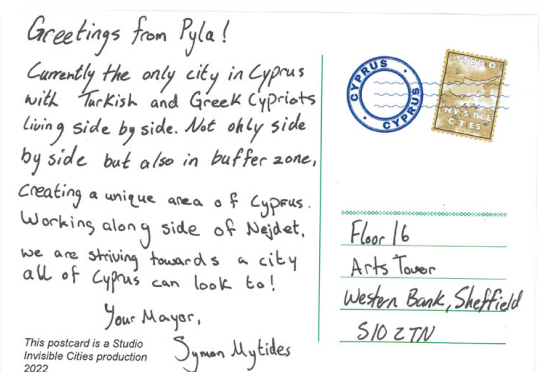 Greetings from Pyla!
Currently the only city in Cyprus
with Turkish and Greek Cypriots
living side by side. Not only side
by side but also in buffer zone,
creating a unique area of Cyprus.
Working along side of Nejdet,
we are striving towards a city
all of Cyprus can look to!
Your Mayor,
Symon Mytides
This postcard is a Studio
Invisible Cities production
2022
CYPRUS
CYPRUS
STUDIO
CITIES
Floor 16
Arts Tower
Western Bank, Sheffield
S10 2TN